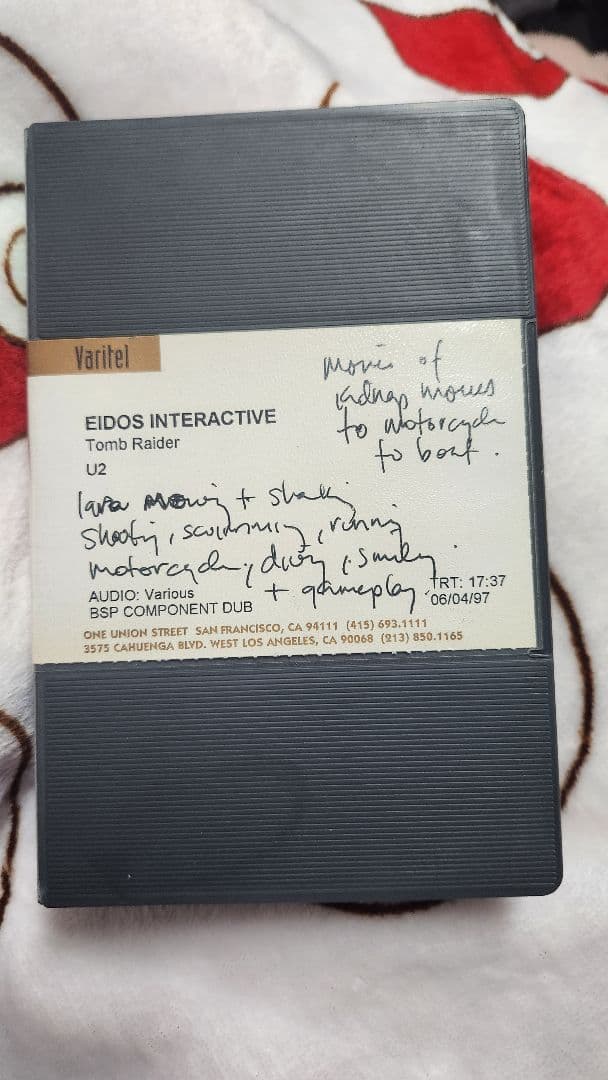 Varitel
movie of
kidnap moves
to motorcycle
to boat.
EIDOS INTERACTIVE
Tomb Raider
U2
lara moving +
shooting, swimming, running
motorcycle, diving, smiling.
+ gameplay
AUDIO: Various
BSP COMPONENT DUB
TRT: 17:37
06/04/97
ONE UNION STREET SAN FRANCISCO, CA 94111 (415) 693.1111
3575 CAHUENGA BLVD. WEST LOS ANGELES, CA 90068 (213) 850.1165